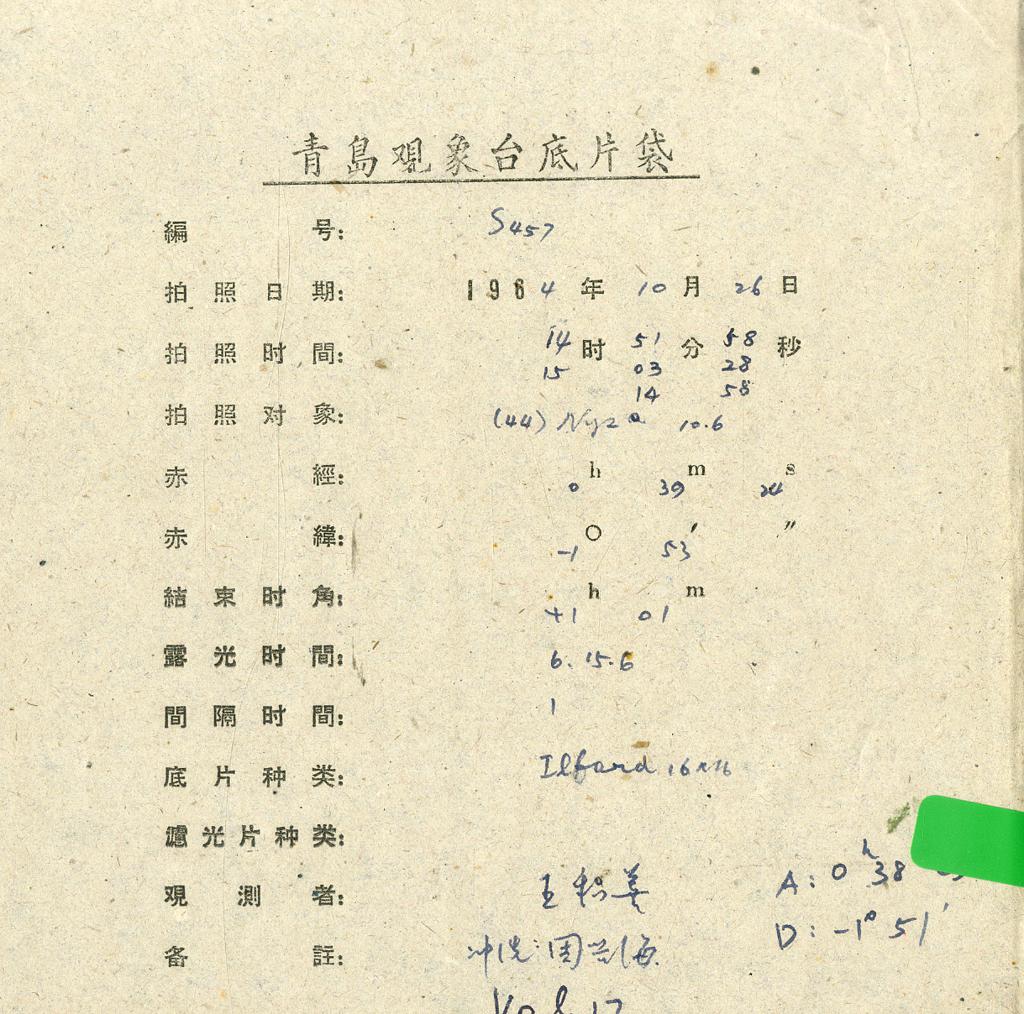 青島观象台底片袋
編号: S457
拍照日期: 1964年10月26日
拍照时間: 14时51分58秒
15 03 28
14 58
拍照对象: (44) Nysa 10.6
赤經: 0h 39m 24s
赤緯: -1° 53′ ″
結束时角: +1h 01m
露光时間: 6.15.6
間隔时間: 1
底片种类: Ilford 16×16
濾光片种类:
观測者: 王
A: 0h 38
备註: 冲洗: 周
D: -1° 51′